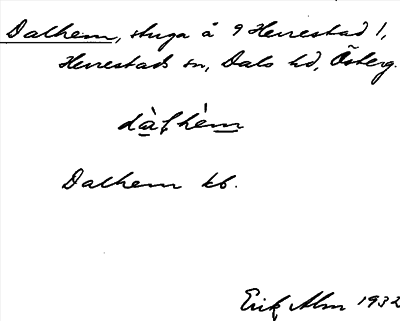 Dalhem, stuga å 9 Herrestad 1,
Herrestads sn, Dals hd, Österg.
dàlhèm
Dalhem kb.
Erik Alm 1932